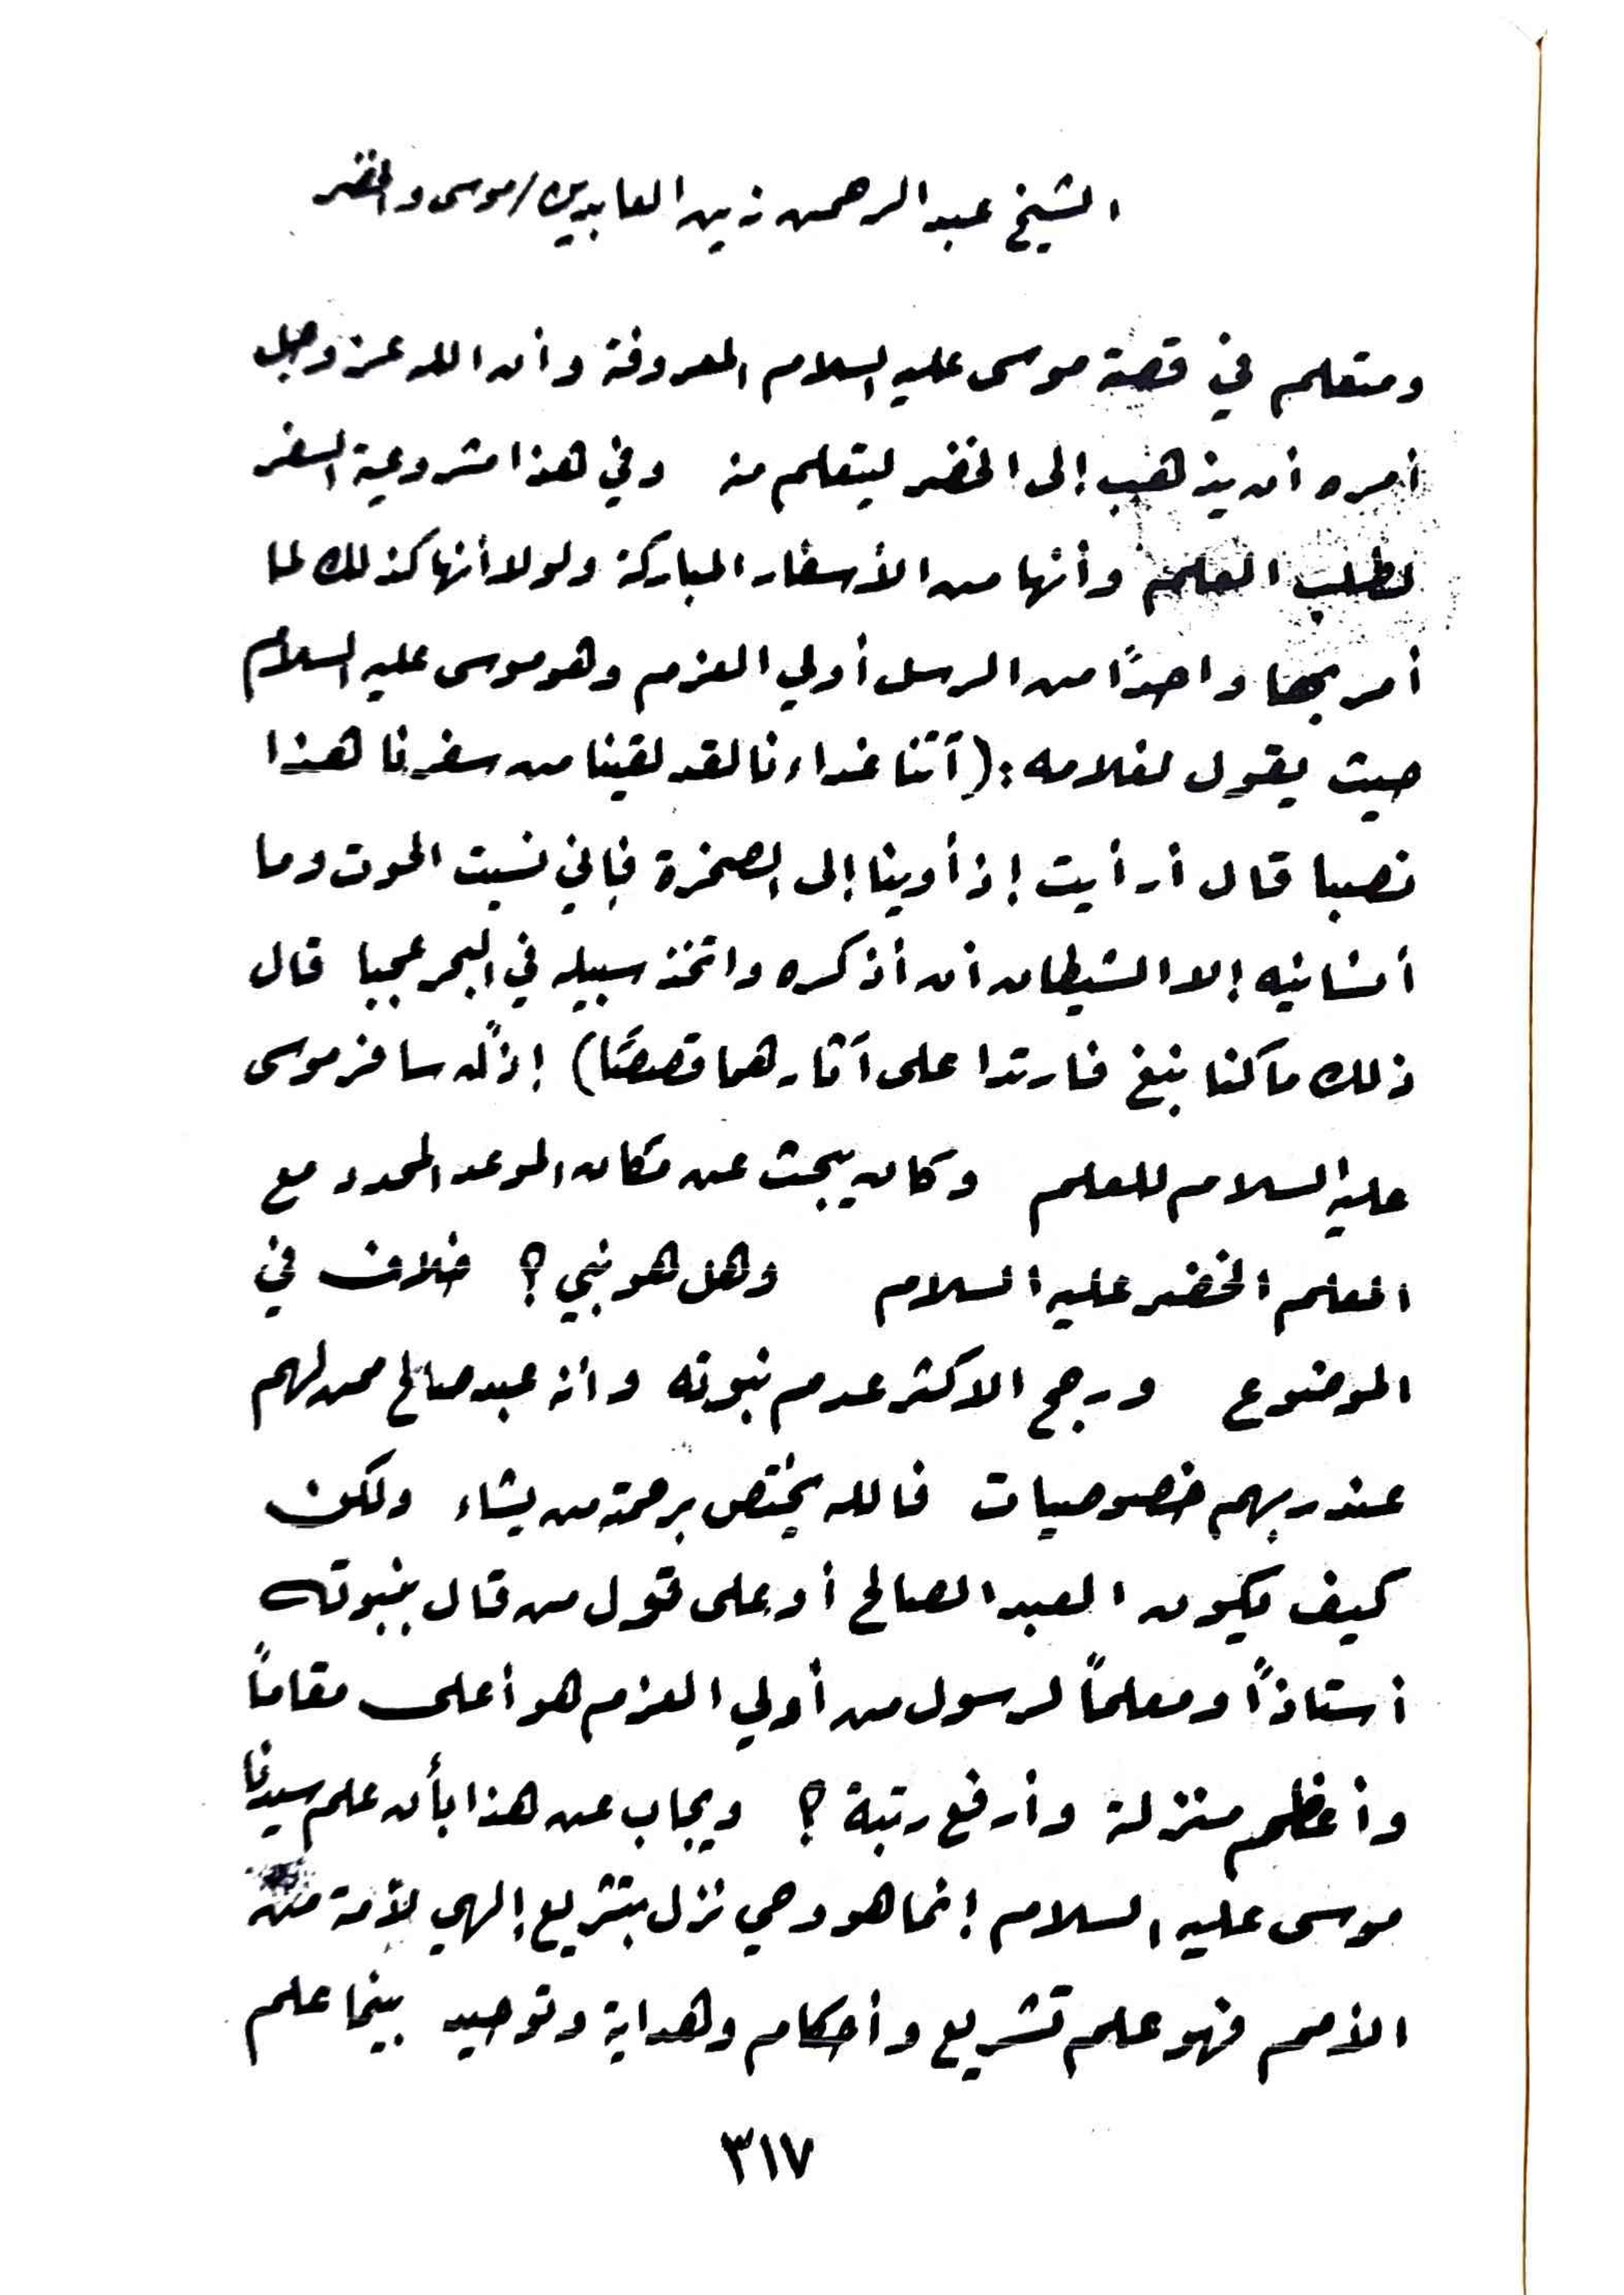 الشيخ عبد الرحمن زين العابدين/موسى والخضر
ومتعلم في قصة موسى عليه السلام المعروفة وأن الله عز وجل
أمره أن يذهب إلى الخضر ليتعلم منه وفي هذا مشروعية السفر
لطلب العلم وأنها من الأسفار المباركة ولولا أنها كذلك لما
أمر بها واحدًا من الرسل أولي العزم وهو موسى عليه السلام
حيث يقول لغلامه: (آتنا غداءنا لقد لقينا من سفرنا هذا
نصبا قال أرأيت إذ أوينا إلى الصخرة فإني نسيت الحوت وما
أنسانيه إلا الشيطان أن أذكره واتخذ سبيله في البحر عجبا قال
ذلك ما كنا نبغ فارتدا على آثارهما قصصًا) إذًا سافر موسى
عليه السلام للعلم وكان يبحث عن مكان الموعد المحدد مع
المعلم الخضر عليه السلام وهل هو نبي؟ خلاف في
الموضوع ورجح الاكثر عدم نبوته وأنه عبد صالح ممن لهم
عند ربهم خصوصيات فالله يختص برحمته من يشاء ولكن
كيف يكون العبد الصالح أو على قول من قال بنبوته
أستاذًا ومعلمًا لرسول من أولي العزم هو أعلى مقامًا
وأعظم منزلة وأرفع رتبة؟ ويجاب عن هذا بأن علم سيدنا
موسى عليه السلام إنما هو وحي نزل بتشريع إلهي لأمة من
الأمم فهو علم تشريع وأحكام وهداية وتوحيد بينما علم
٣١٧